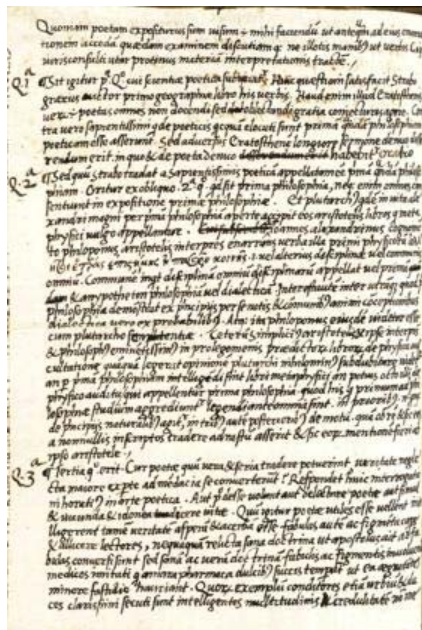 Quoniam poetam expositurus sum visum ÷ mihi faciendū ut anteq ad eius enar
tionem accedā quædam examinem discutiamq; ne illotis manib⁹ ut verbis Cai
verisconsulti utar protinus materiā interpretationis tractē.
Q. 1ᵃ Sit igitur p. Q. cui scientiæ poetica Huic quæstioni satisfacit Strabo
græcus auctor primo geographiæ libro his verbis. Haud enim illud Eratosthenis
verū ÷ poetas omnes non docendi sed gratia coniecturas agere. Con
tra vero sapientissimi qde poeticis qcquā elocuti sunt primā quādā philosophiā
poeticam esse asserunt. Sed adversus Eratosthene longiori sermone demo dis
rendum erit. in quo & de poeta denuo habebit oratio
Q. 2ᵃ Sed qui Strabo tradat a sapientissimis poeticā appellatam ee primā quādā philoso
phiam. Oritur ex obliquo 2ᵃ q. qd sit prima philosophia, neq; enim omnes con
sentiunt in expositione primæ philosophiæ. Et plutarch⁹ qde in vita ale
xandri magni per primā philosophiā aperte accipit eos aristotelis libros q meta
physici vulgo appellantur. Ioannes alexandrinus cogno
to philoponus aristotelis interpres enarrans verba illa primi physicoru
κοινῆς .i. vel alterius disciplinæ vel communis
omniū. Commune inqt disciplinā omniū disciplinaru appellat vel primā
& anypothetem philosophiā vel dialectica. Inter
philosophia demostrat ex principiis per se notis & comunib⁹ animi coceptionibus
dialectica vero ex probabilib⁹. Atq; ita philoponus eiusde videtur esse
cum plutarcho sententiæ. Ceterū simplici⁹ aristotelis & ipse interpres
& philosoph⁹ eminetissim⁹ in prolegomenis prædictoru libroru de physica aus
cultatione quāquā legerit opinione plutarchi nihilomin⁹ subdubitare videt
an p primā philosophiam intelligedi sint libri metaphysici an potius octo illi de
physico auditu qui appellentur prima philosophia quod his q primum ad phi
losophiæ studium aggrediunt legendi ante omnia sint. in priorib⁹.
de principiis naturalib⁹ agit, in trib⁹ aute posteriorib⁹ de motu. qua ob re & hos
a nonnullis inscriptos tradere ad nostū asserit & hc eor. mentione fieri
ipso aristotele.
Q. 3ᵃ Tertia q. erit. Cur poetæ quā vera & seria tradere potuerint veritate negle
cta maiore ex pte ad medacia se converterint. Respondet huic interrogatioi
ni horati⁹ in arte poetica. Aut pdesse volunt aut delectare poetæ aut simul
& iucunda & idonea dicere vitæ. Qui igitur poetæ utiles esse vellent in
telligerent tamē veritate asperā & acerbā esse. fabulas aute ac figmeta capere
& allicere lectores, nequaquā relicta sana doctrina ut apostolus ait ad fa
bulas conversi sint sed sanā ac verā doctrinā fabulis ac figmentis involuerunt
medicos imitati q amara pharmaca dulcib⁹ sucis temperat ut ea ægroti
minore fastidio hauriant. Quoru exemplu conditores etiā urbiu & du
ces clarissimi secuti sunt intelligentes multitudinis credulitate ni